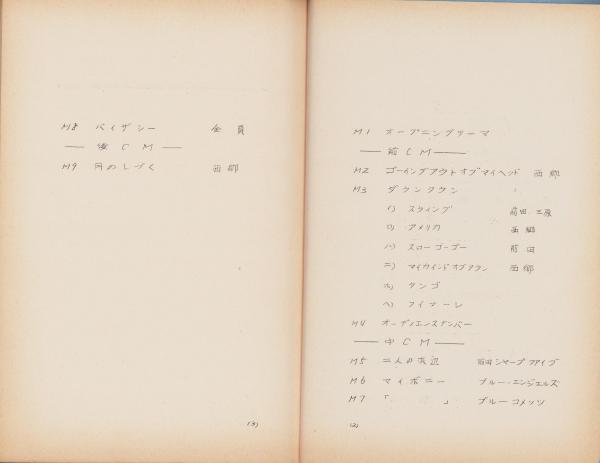 M1 オープニングテーマ
前CM
M2 ゴーイングアウトオブマイヘッド 西郷
M3 ダウンタウン
イ) スウィング 前田 三原
ロ) アメリカ 西郷
ハ) スローゴーゴー 前田
ニ) マイカインドオブタウン 西郷
ホ) タンゴ
ヘ) フィナーレ
M4 オーディエンスナンバー
中CM
M5 二人の 前田 シャープファイブ
M6 マイボニー ブルー・エンジェルズ
M7 「 」 ブルーコメッツ
(2)
M8 バイザシー 全員
後CM
M9 月のしづく 西郷
(3)